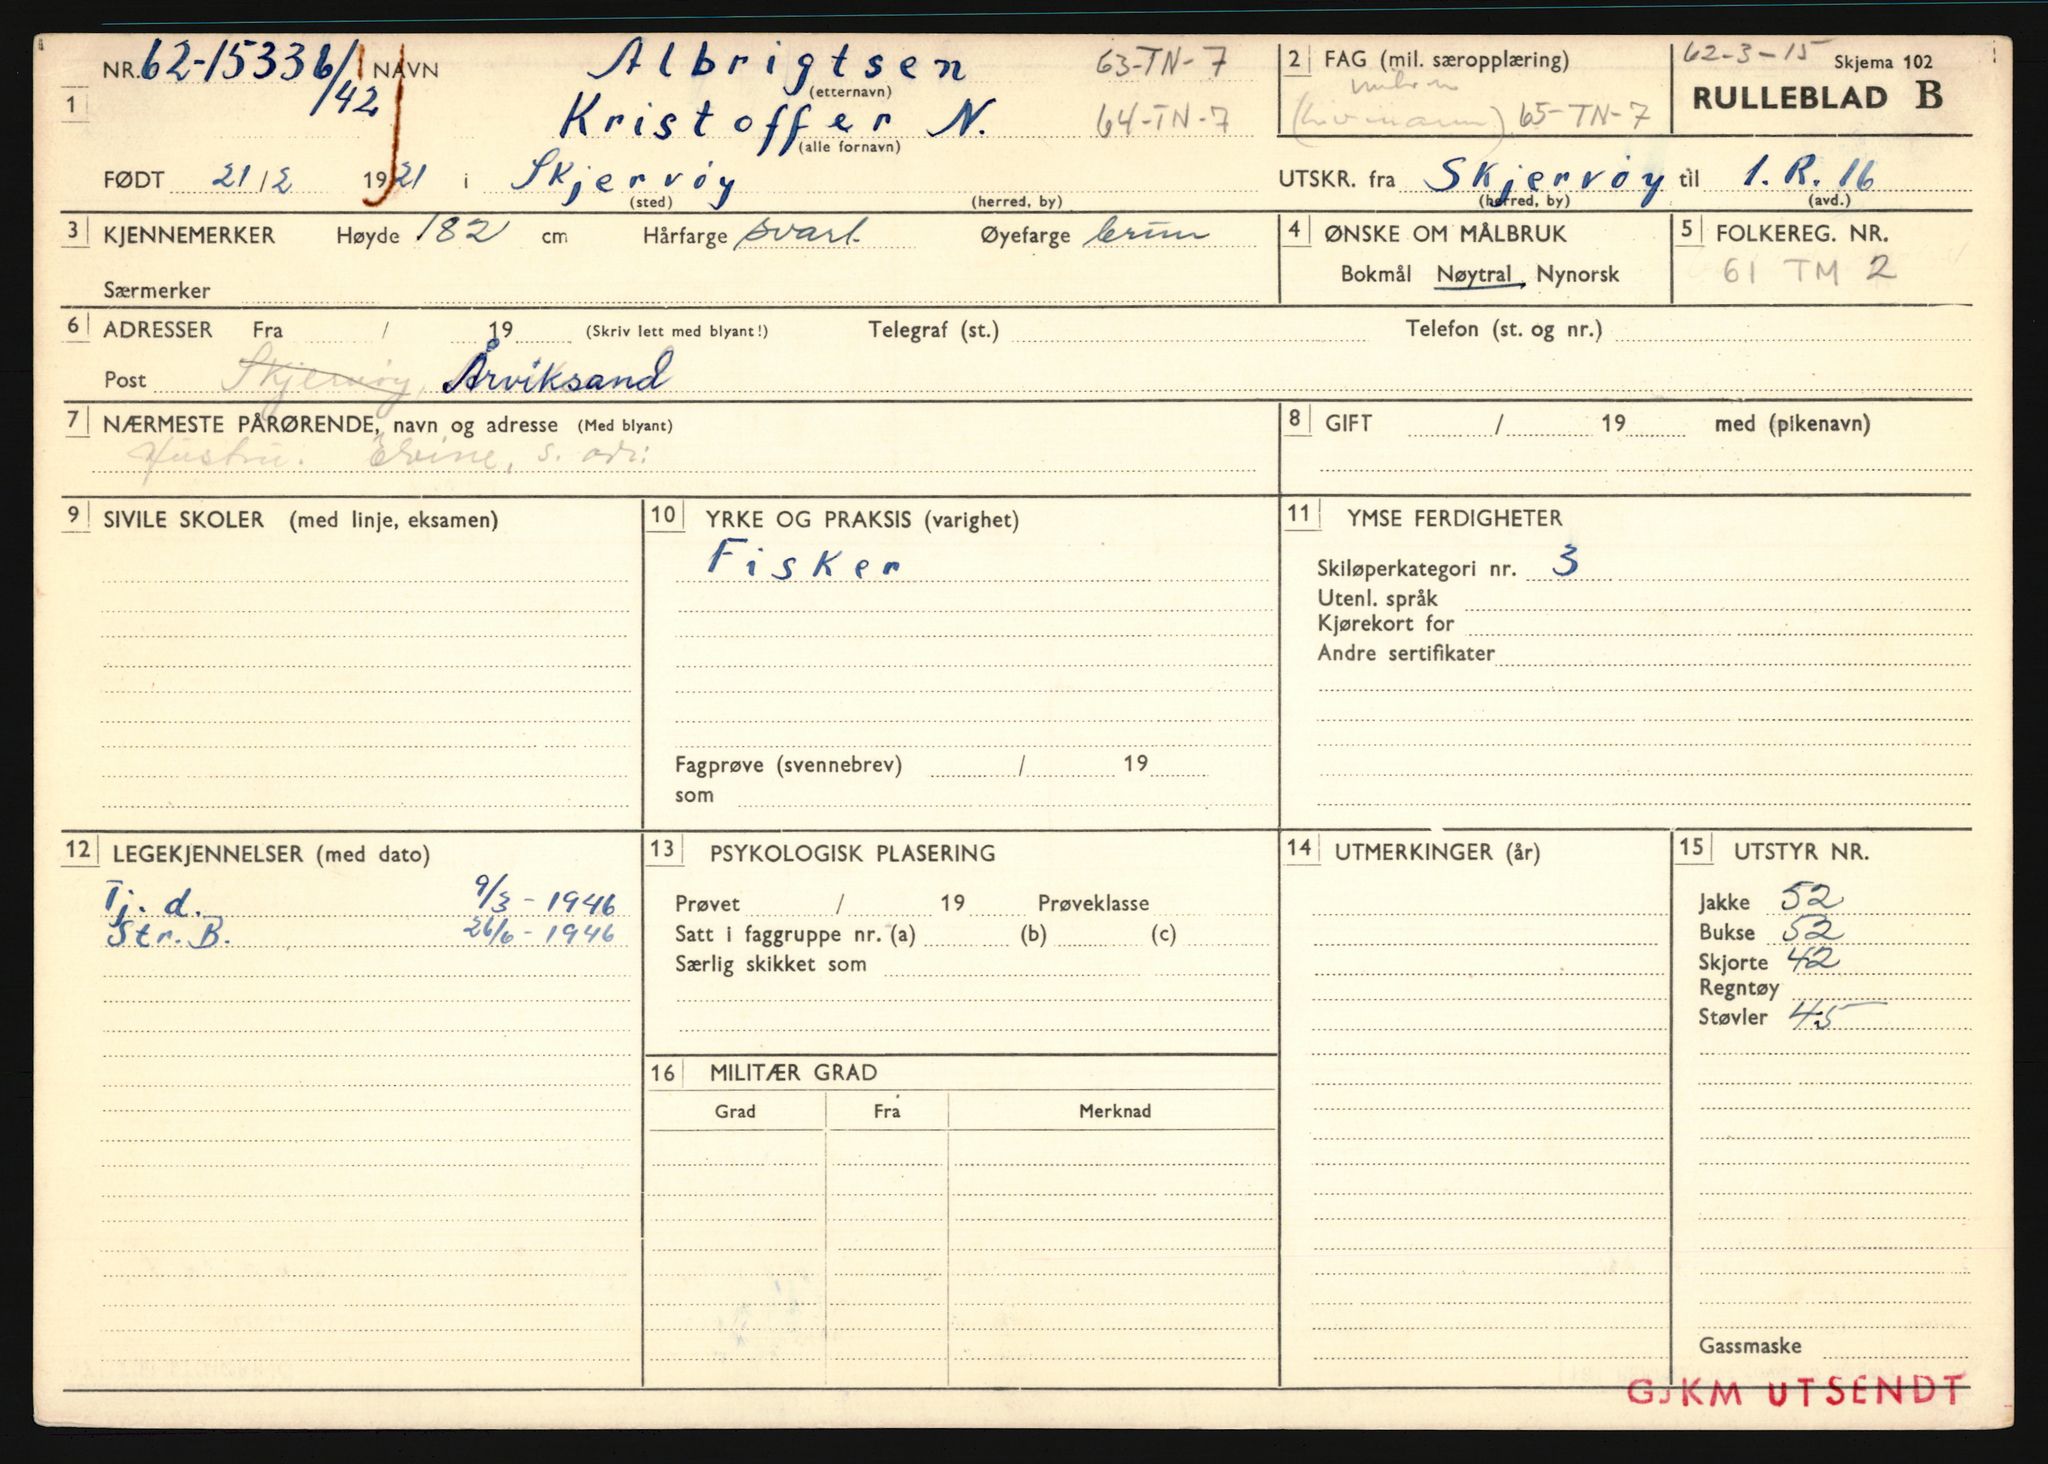 NR. 62-15336/1 NAVN Albrigtsen 63-TN-7
(etternavn)
1 /42 Kristoffer N. 64-TN-7
(alle fornavn)
FØDT 21/2 1921 i Skjervöy
(sted) (herred, by)
2 FAG (mil. særopplæring)
65-TN-7
62-3-15 Skjema 102
RULLEBLAD B
UTSKR. fra Skjervöy til 1. R. 16
(herred, by) (avd.)
3 KJENNEMERKER Høyde 182 cm Hårfarge svart Øyefarge brun
Særmerker
4 ØNSKE OM MÅLBRUK
Bokmål Nøytral Nynorsk
5 FOLKEREG. NR.
61 TM 2
6 ADRESSER Fra / 19 (Skriv lett med blyant!) Telegraf (st.) Telefon (st. og nr.)
Post Skjervøy, Årviksand
7 NÆRMESTE PÅRØRENDE, navn og adresse (Med blyant)
Hustru: s. adr:
8 GIFT / 19 med (pikenavn)
9 SIVILE SKOLER (med linje, eksamen)
10 YRKE OG PRAKSIS (varighet)
Fisker
Fagprøve (svennebrev) / 19
som
11 YMSE FERDIGHETER
Skiløperkategori nr. 3
Utenl. språk
Kjørekort for
Andre sertifikater
12 LEGEKJENNELSER (med dato)
Tj. d. 9/3 - 1946
Str. B. 26/6 - 1946
13 PSYKOLOGISK PLASERING
Prøvet / 19 Prøveklasse
Satt i faggruppe nr. (a) (b) (c)
Særlig skikket som
16 MILITÆR GRAD
Grad Fra Merknad
14 UTMERKINGER (år)
15 UTSTYR NR.
Jakke 52
Bukse 52
Skjorte 42
Regntøy
Støvler 45
Gassmaske
GJKM UTSENDT